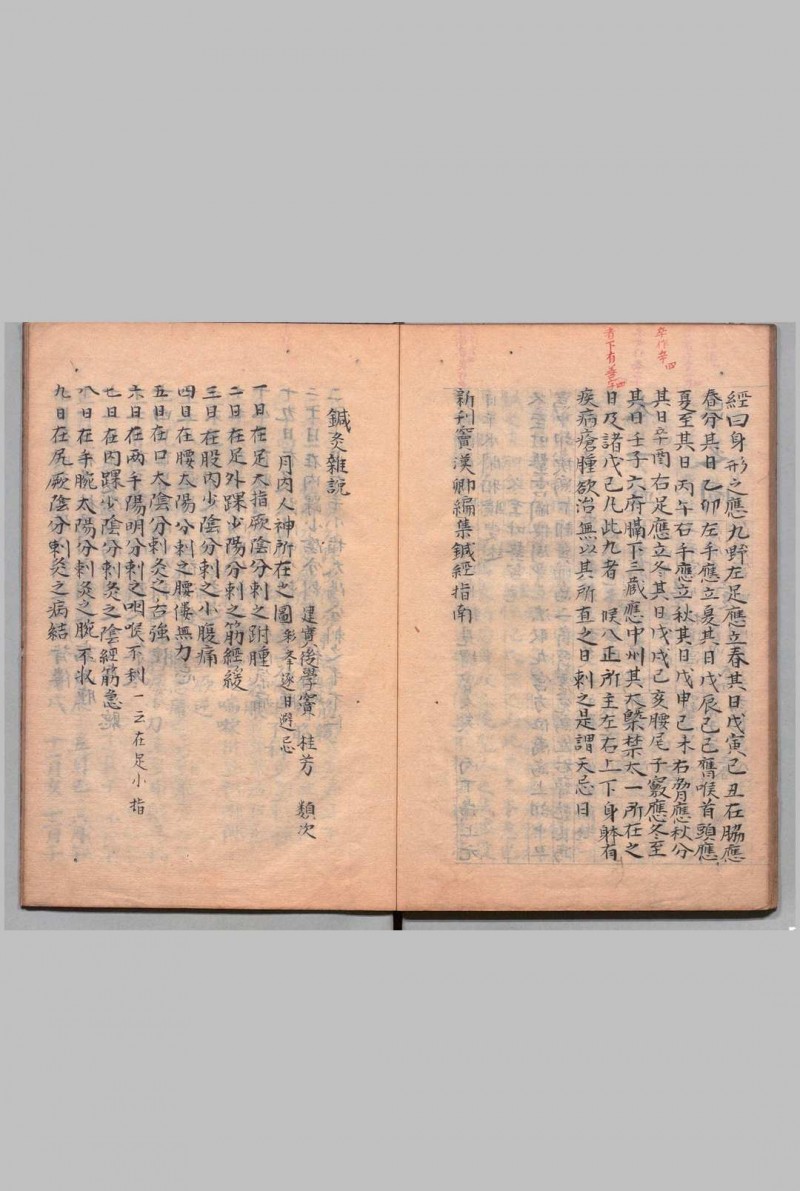 辛作辛
者下有善
經曰身形之應九野左足應立春其日戊寅己丑在脇應
春分其日乙卯左手應立夏其日戊辰己巳膺喉首頭應
夏至其日丙午右手應立秋其日戊申己未右脅應秋分
其日辛酉右足應立冬其日戊戌己亥腰尾子竅應冬至
其日壬子六府膈下三藏應中州其大槩禁太一所在之
日及諸戊己凡此九者 候八正所主左右上下身躰有
疾病瘡腫欲治無以其所直之日刺之是謂天忌日
新刋竇漢卿編集鍼經指南
鍼灸雜說
建寶後學竇 桂芳 類次
一月内人神所在之圖 逐日避忌
一日在足大指厥陰分刺之跗腫
二日在足外踝少陽分刺之筋經緩
三日在股内少陰分刺之小腹痛
四日在腰太陽分刺之腰僂無力
五日在口太陰分刺灸之舌強
六日在两手陽明分刺之咽喉不利 一云在足小指
七日在内踝少陰分刺灸之陰經筋急
八日在手腕太陽分刺灸之腕不收
九日在尻厥陰分刺灸之病結